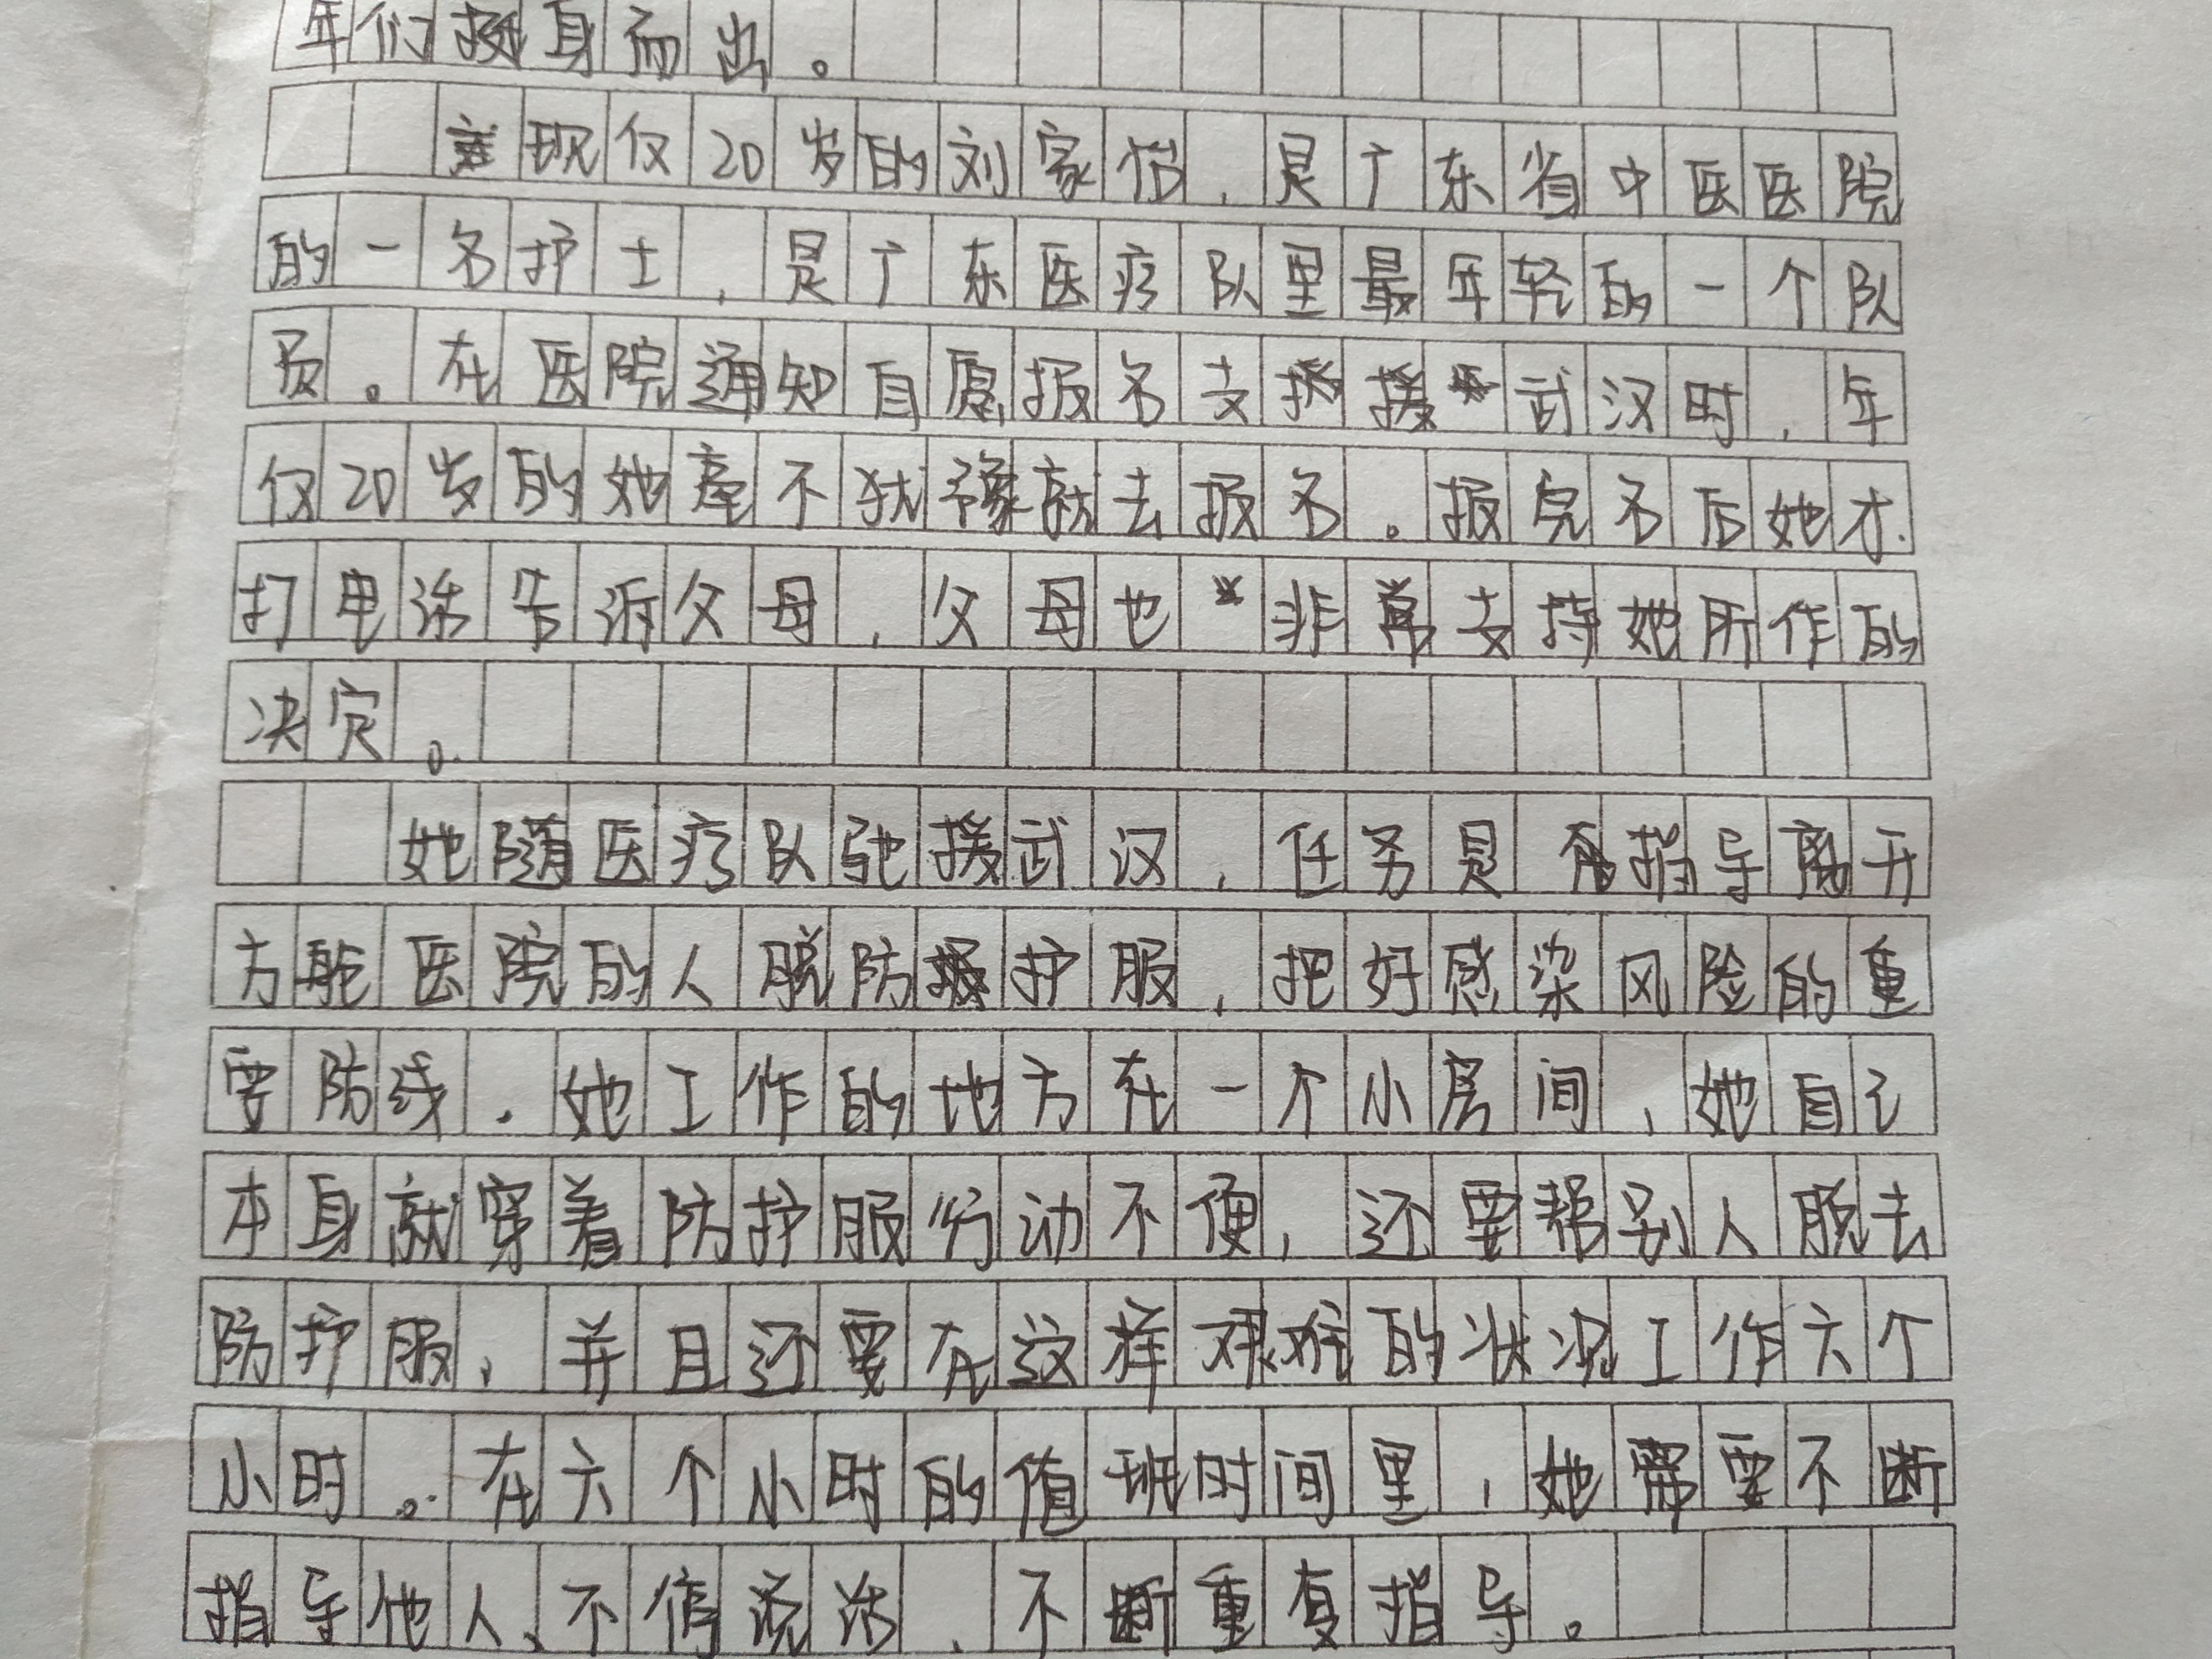 年们挺身而出。
现仅20岁的刘家怡，是广东省中医医院
的一名护士，是广东医疗队里最年轻的一个队
员。在医院通知自愿报名支援武汉时，年
仅20岁的她毫不犹豫就去报名。报完名后她才
打电话告诉父母，父母也非常支持她所作的
决定。
她随医疗队驰援武汉，任务是指导离开
方舱医院的人脱防护服，把好感染风险的重
要防线。她工作的地方在一个小房间，她自己
本身就穿着防护服行动不便，还要帮别人脱去
防护服，并且还要在这样艰难的状况工作六个
小时。在六个小时的值班时间里，她需要不断
指导他人、不停说话、不断重复指导。